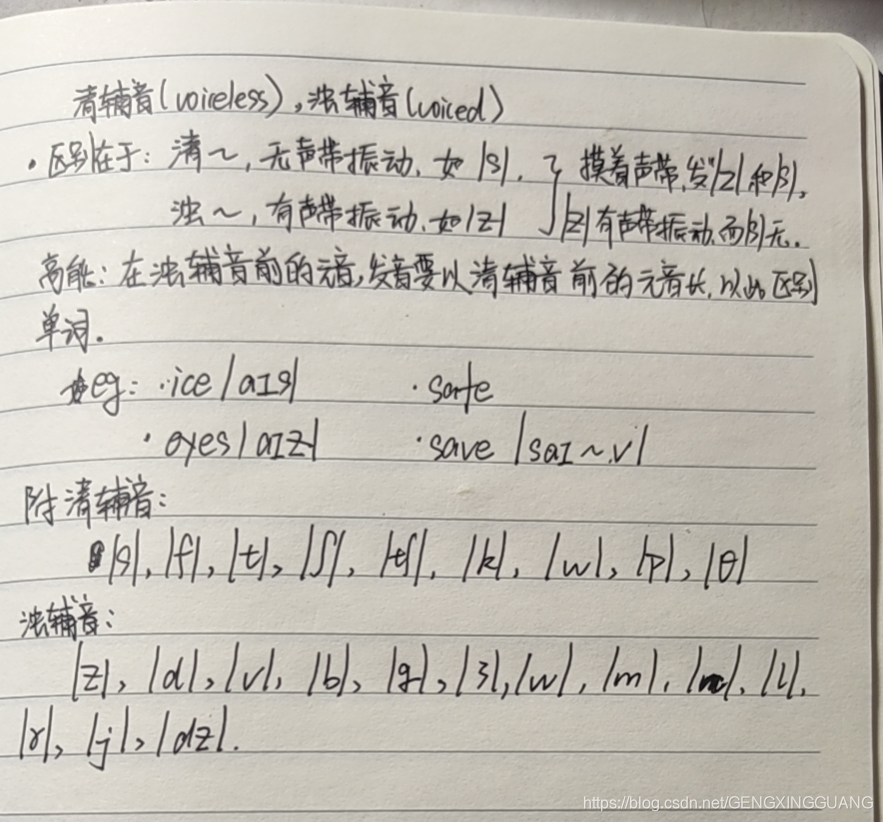 清辅音(voireless),浊辅音(voiced)
·区别在于:清~,无声带振动,如|s|. 摸着声带,发|z|和|s|,
浊~,有声带振动,如|z| |z|有声带振动,而|s|无.
高能:在浊辅音前的元音,发音要以清辅音前的元音长,以此区别
单词.
eg: ·ice |aIs| ·safe
·eyes |aIz| ·save |saI~v|
附清辅音:
|s|, |f|, |t|, |ʃ|, |tʃ|, |k|, |w|, |p|, |θ|
浊辅音:
|z|, |d|, |v|, |b|, |g|, |ʒ|, |w|, |m|, |n|, |l|,
|r|, |j|, |dz|.
https://blog.csdn.net/GENGXINGGUANG